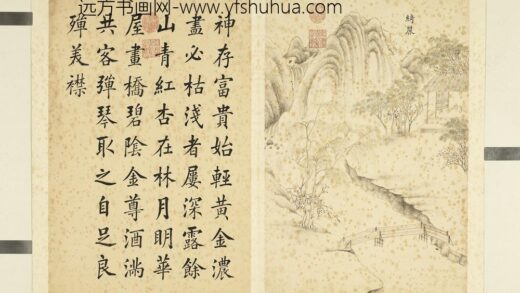 远方书画网-www.yfshuhua.com
綺麗
神存富貴始輕黃金濃
盡必枯淺者屢深露餘
山青紅杏在林月明華
屋畫橋碧陰金尊酒滿
共客彈琴取之自足良
殫美襟